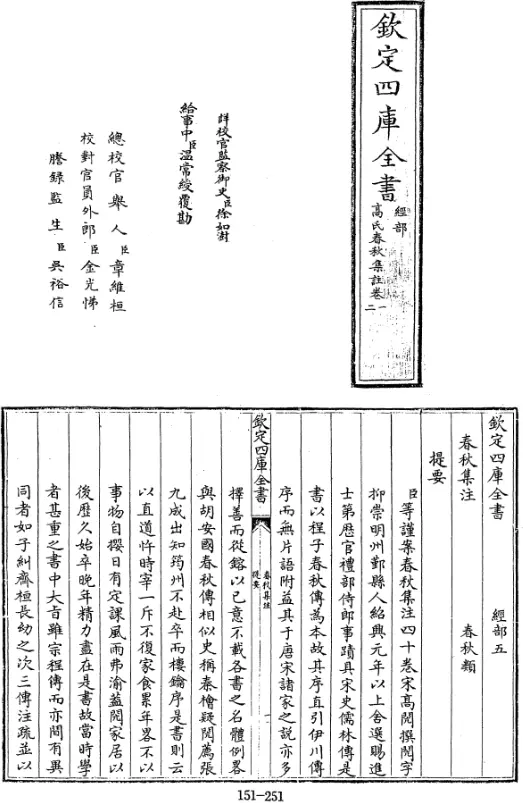 欽定四庫全書
經部
高氏春秋集註卷一
二
詳校官監察御史臣徐如澍
給事中臣温常綬覆勘
總校官舉人臣章維桓
校對官員外郎臣金光悌
謄錄監生臣吳裕信
欽定四庫全書 經部五
春秋集注 春秋類
提要
臣等謹案春秋集注四十卷宋高閌撰閌字
抑崇明州鄞縣人紹興元年以上舍選賜進
士第歴官禮部侍郎事蹟具宋史儒林傳是
書以程子春秋傳為本故其序直引伊川傳
序而無片語附益其于唐宋諸家之説亦多
欽定四庫全書
春秋集注
提要
一
擇善而從鎔以已意不載各書之名體例畧
與胡安國春秋傳相似史稱秦檜疑閌薦張
九成出知筠州不赴卒而樓鑰序是書則云
以直道忤時宰一斥不復家食累年畧不以
事物自攖日有定課風雨弗渝蓋閌家居以
後歴久始卒晚年精力盡在是書故當時學
者甚重之書中大㫖雖宗程傳而亦間有異
同者如子糾齊桓長幼之次三傳注疏並以
151-251